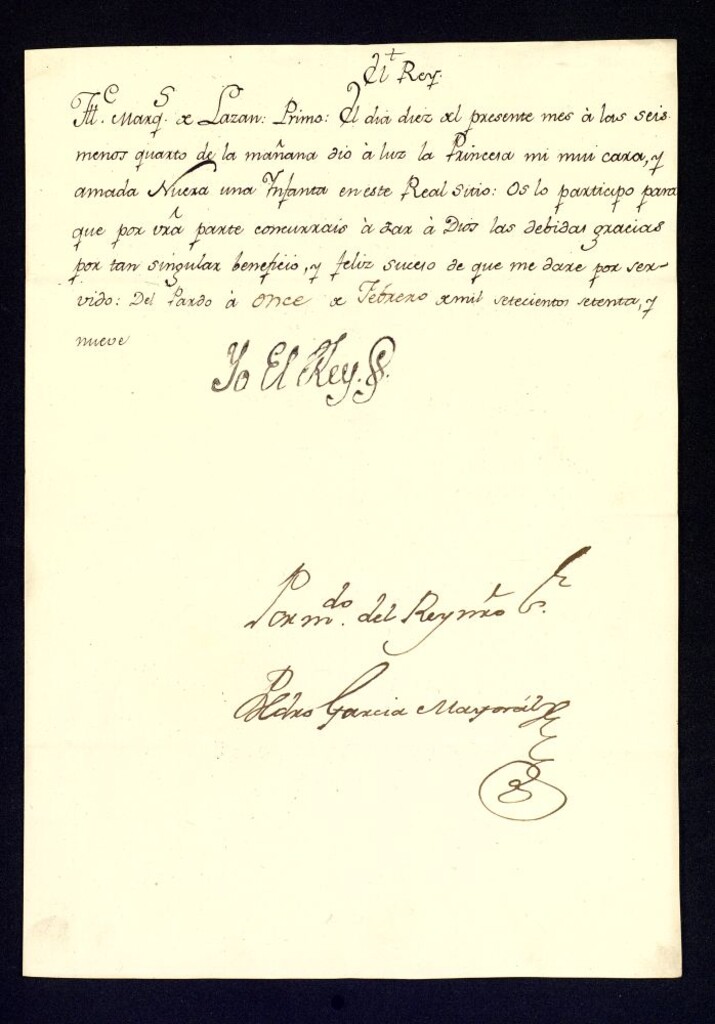 El Rey.
Ill.e Marq.s de Lazan: Primo: El dia diez del presente mes à las seis
menos quarto de la mañana dio à luz la Princesa mi mui cara, y
amada Nuera una Infanta en este Real Sitio: Os lo participo para
que por vrã parte concurrais à dar à Dios las debidas gracias
por tan singular beneficio, y feliz suceso de que me dare por ser-
vido: Del Pardo à once de Febrero de mil setecientos setenta, y
nueve
Yo El Rey.
Por m.do del Rey nro S.r
Pedro Garcia Mayoral